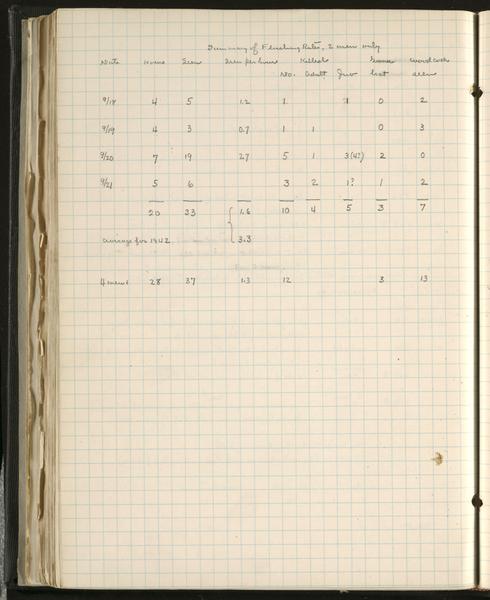 Summary of Flushing Rates, 2 men only
Date Hours Seen Seen per hour Killed Game Woodcock
No. Adult Juv lost seen
9/18 4 5 1.2 1 1 0 2
9/19 4 3 0.7 1 1 0 3
9/20 7 19 27 5 1 3(4?) 2 0
9/21 5 6 3 2 1? 1 2
20 33 1.6 10 4 5 3 7
average for 1942 3.3
4 men 28 37 1.3 12 3 13